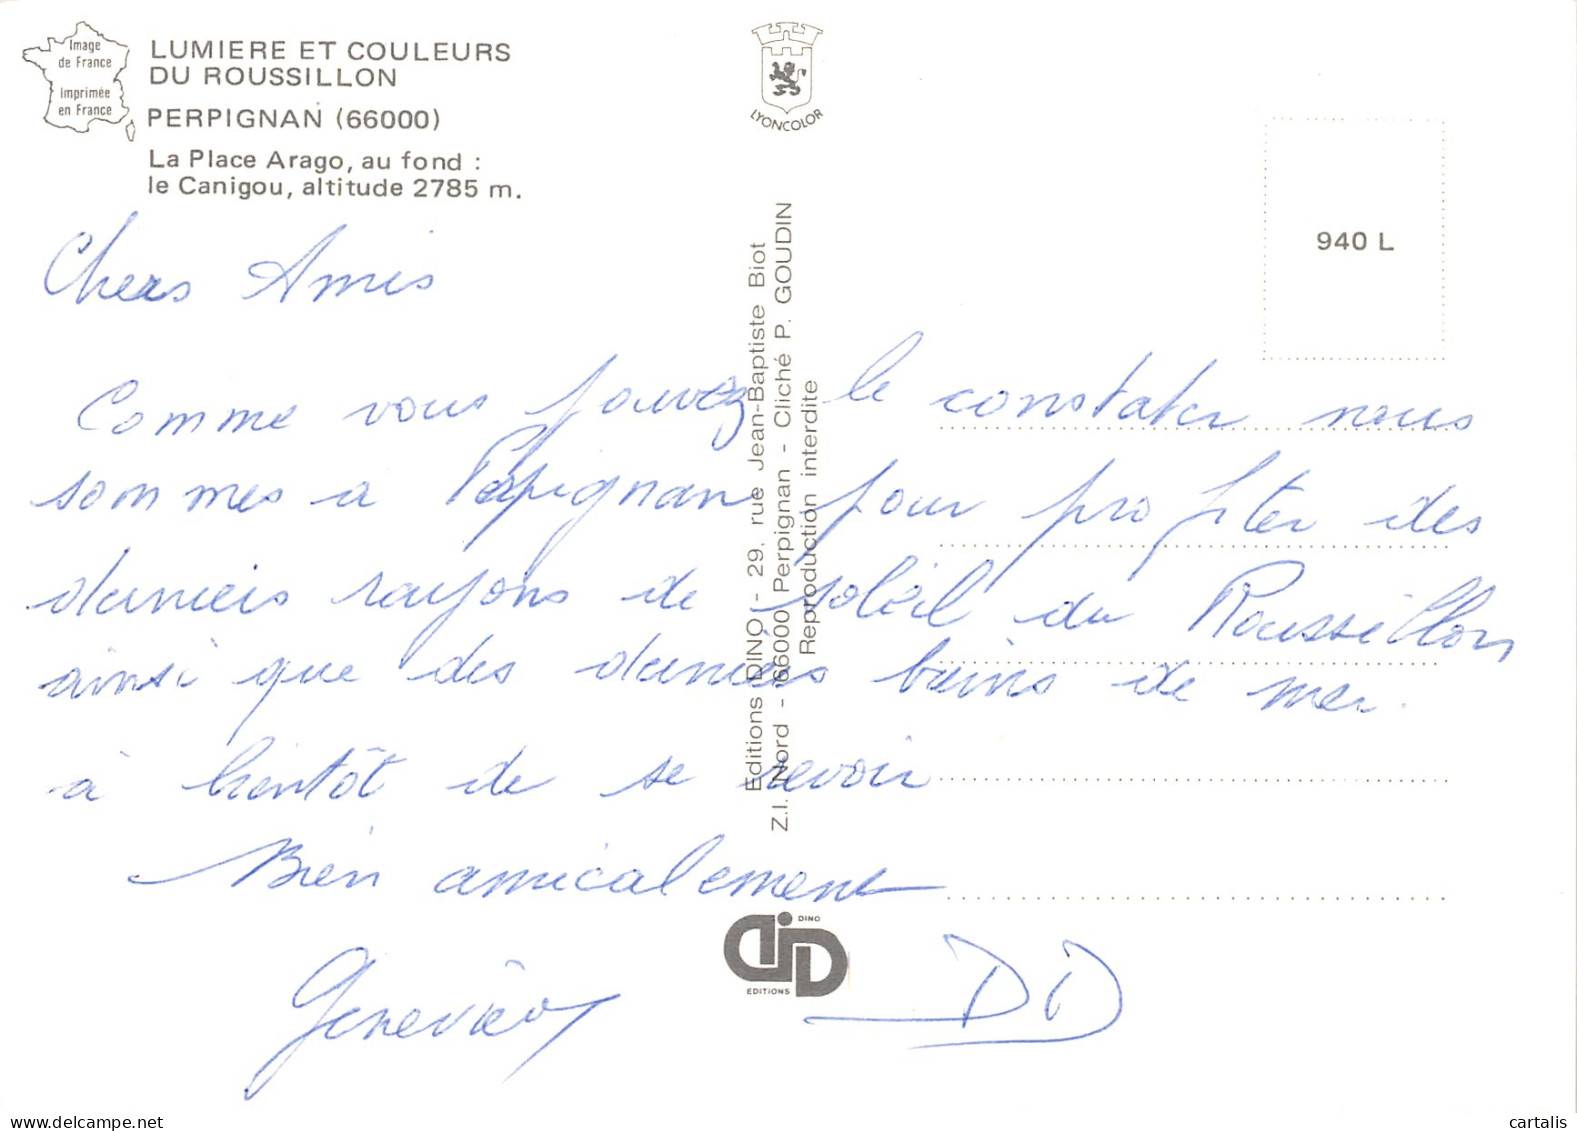 Image
de France
Imprimée
en France
LUMIERE ET COULEURS
DU ROUSSILLON
PERPIGNAN (66000)
La Place Arago, au fond :
le Canigou, altitude 2785 m.
LYONCOLOR
940 L
Editions DINO - 29, rue Jean-Baptiste Biot
Z.I. Nord - 66000 Perpignan - Cliché P. GOUDIN
Reproduction interdite
Chers Amis
Comme vous pouvez le constater nous
sommes a Perpignan pour profiter des
derniers rayons de soleil du Roussillon
ainsi que des derniers bains de mer.
à bientôt de se revoir
Bien amicalement
Geneviève DD
DINO
EDITIONS
cartalis